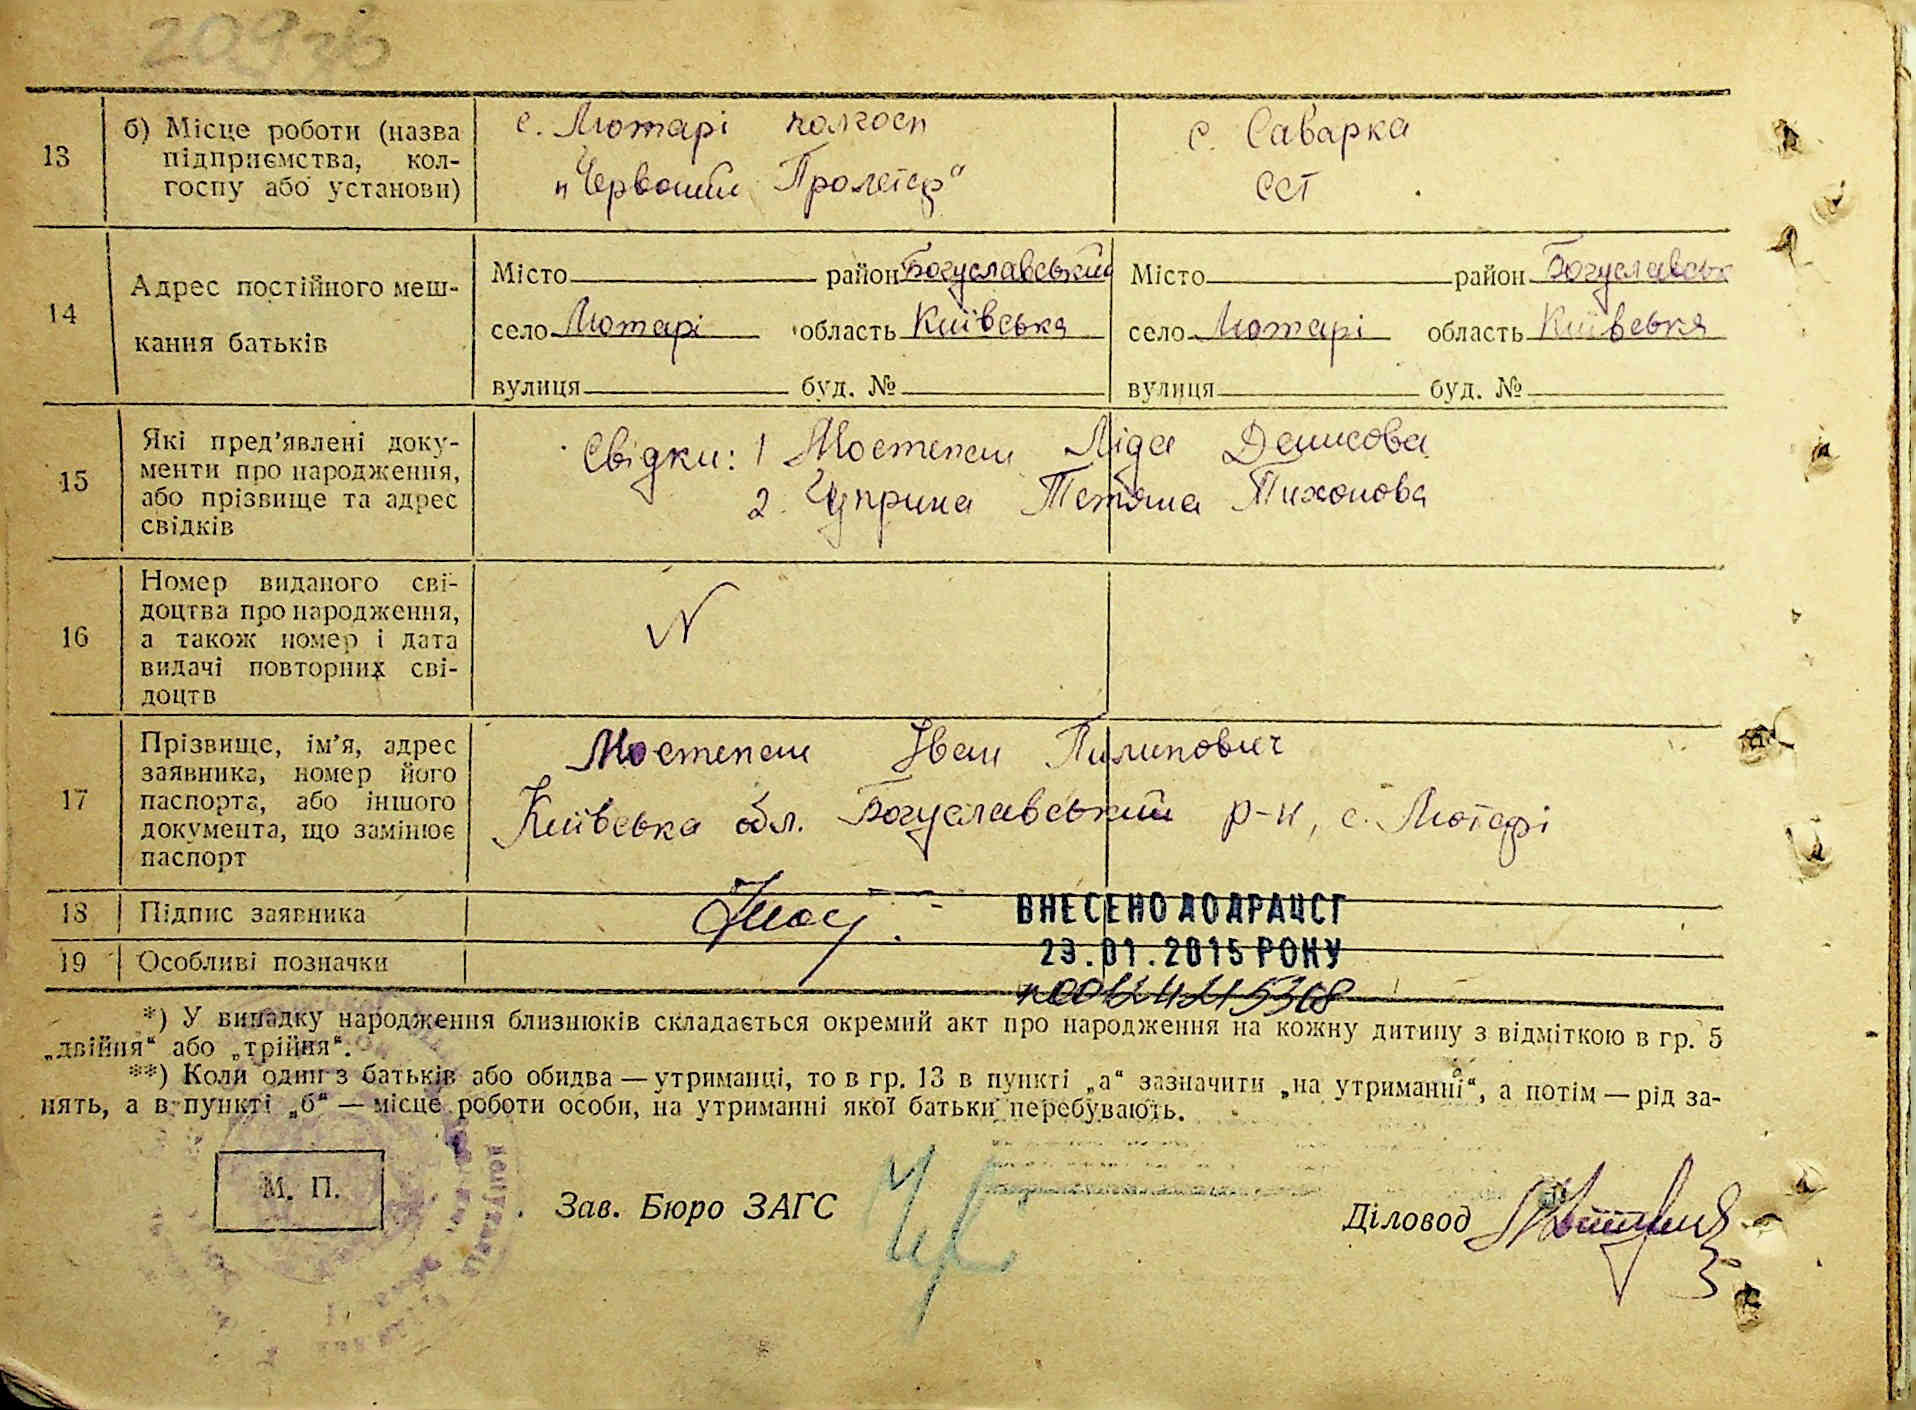 209зв
13 б) Місце роботи (назва підприємства, кол-госпу або установи)
с. Мотарі колгосп
„Червоний Пролетар“
с. Саварка
ССТ
14 Адрес постійного меш-
кання батьків
Місто район Богуславський Місто район Богуславськ
село Мотарі область Київська село Мотарі область Київська
вулиця буд. № вулиця буд. №
15 Які пред’явлені доку-
менти про народження,
або прізвище та адрес
свідків
Свідки: 1 Мостепан Ліда Денисова
2. Чуприна Тетяна Тихонова
16 Номер виданого сві-
доцтва про народження,
а також номер і дата
видачі повторних сві-
доцтв
N
17 Прізвище, ім’я, адрес
заявника, номер його
паспорта, або іншого
документа, що замінює
паспорт
Мостепан Іван Пилипович
Київська обл. Богуславський р-н, с. Мотарі
18 Підпис заявника
ВНЕСЕНО ДО ДРАЦСГ
19 Особливі позначки
23.01.2015 РОКУ
*) У випадку народження близнюків складається окремий акт про народження на кожну дитину з відміткою в гр. 5
„двійня“ або „трійня“.
**) Коли один з батьків або обидва — утриманці, то в гр. 13 в пункті „а“ зазначити „на утриманні“, а потім — рід за-
нять, а в пункті „б“ — місце роботи особи, на утриманні якої батьки перебувають.
М. П.
Зав. Бюро ЗАГС
Діловод